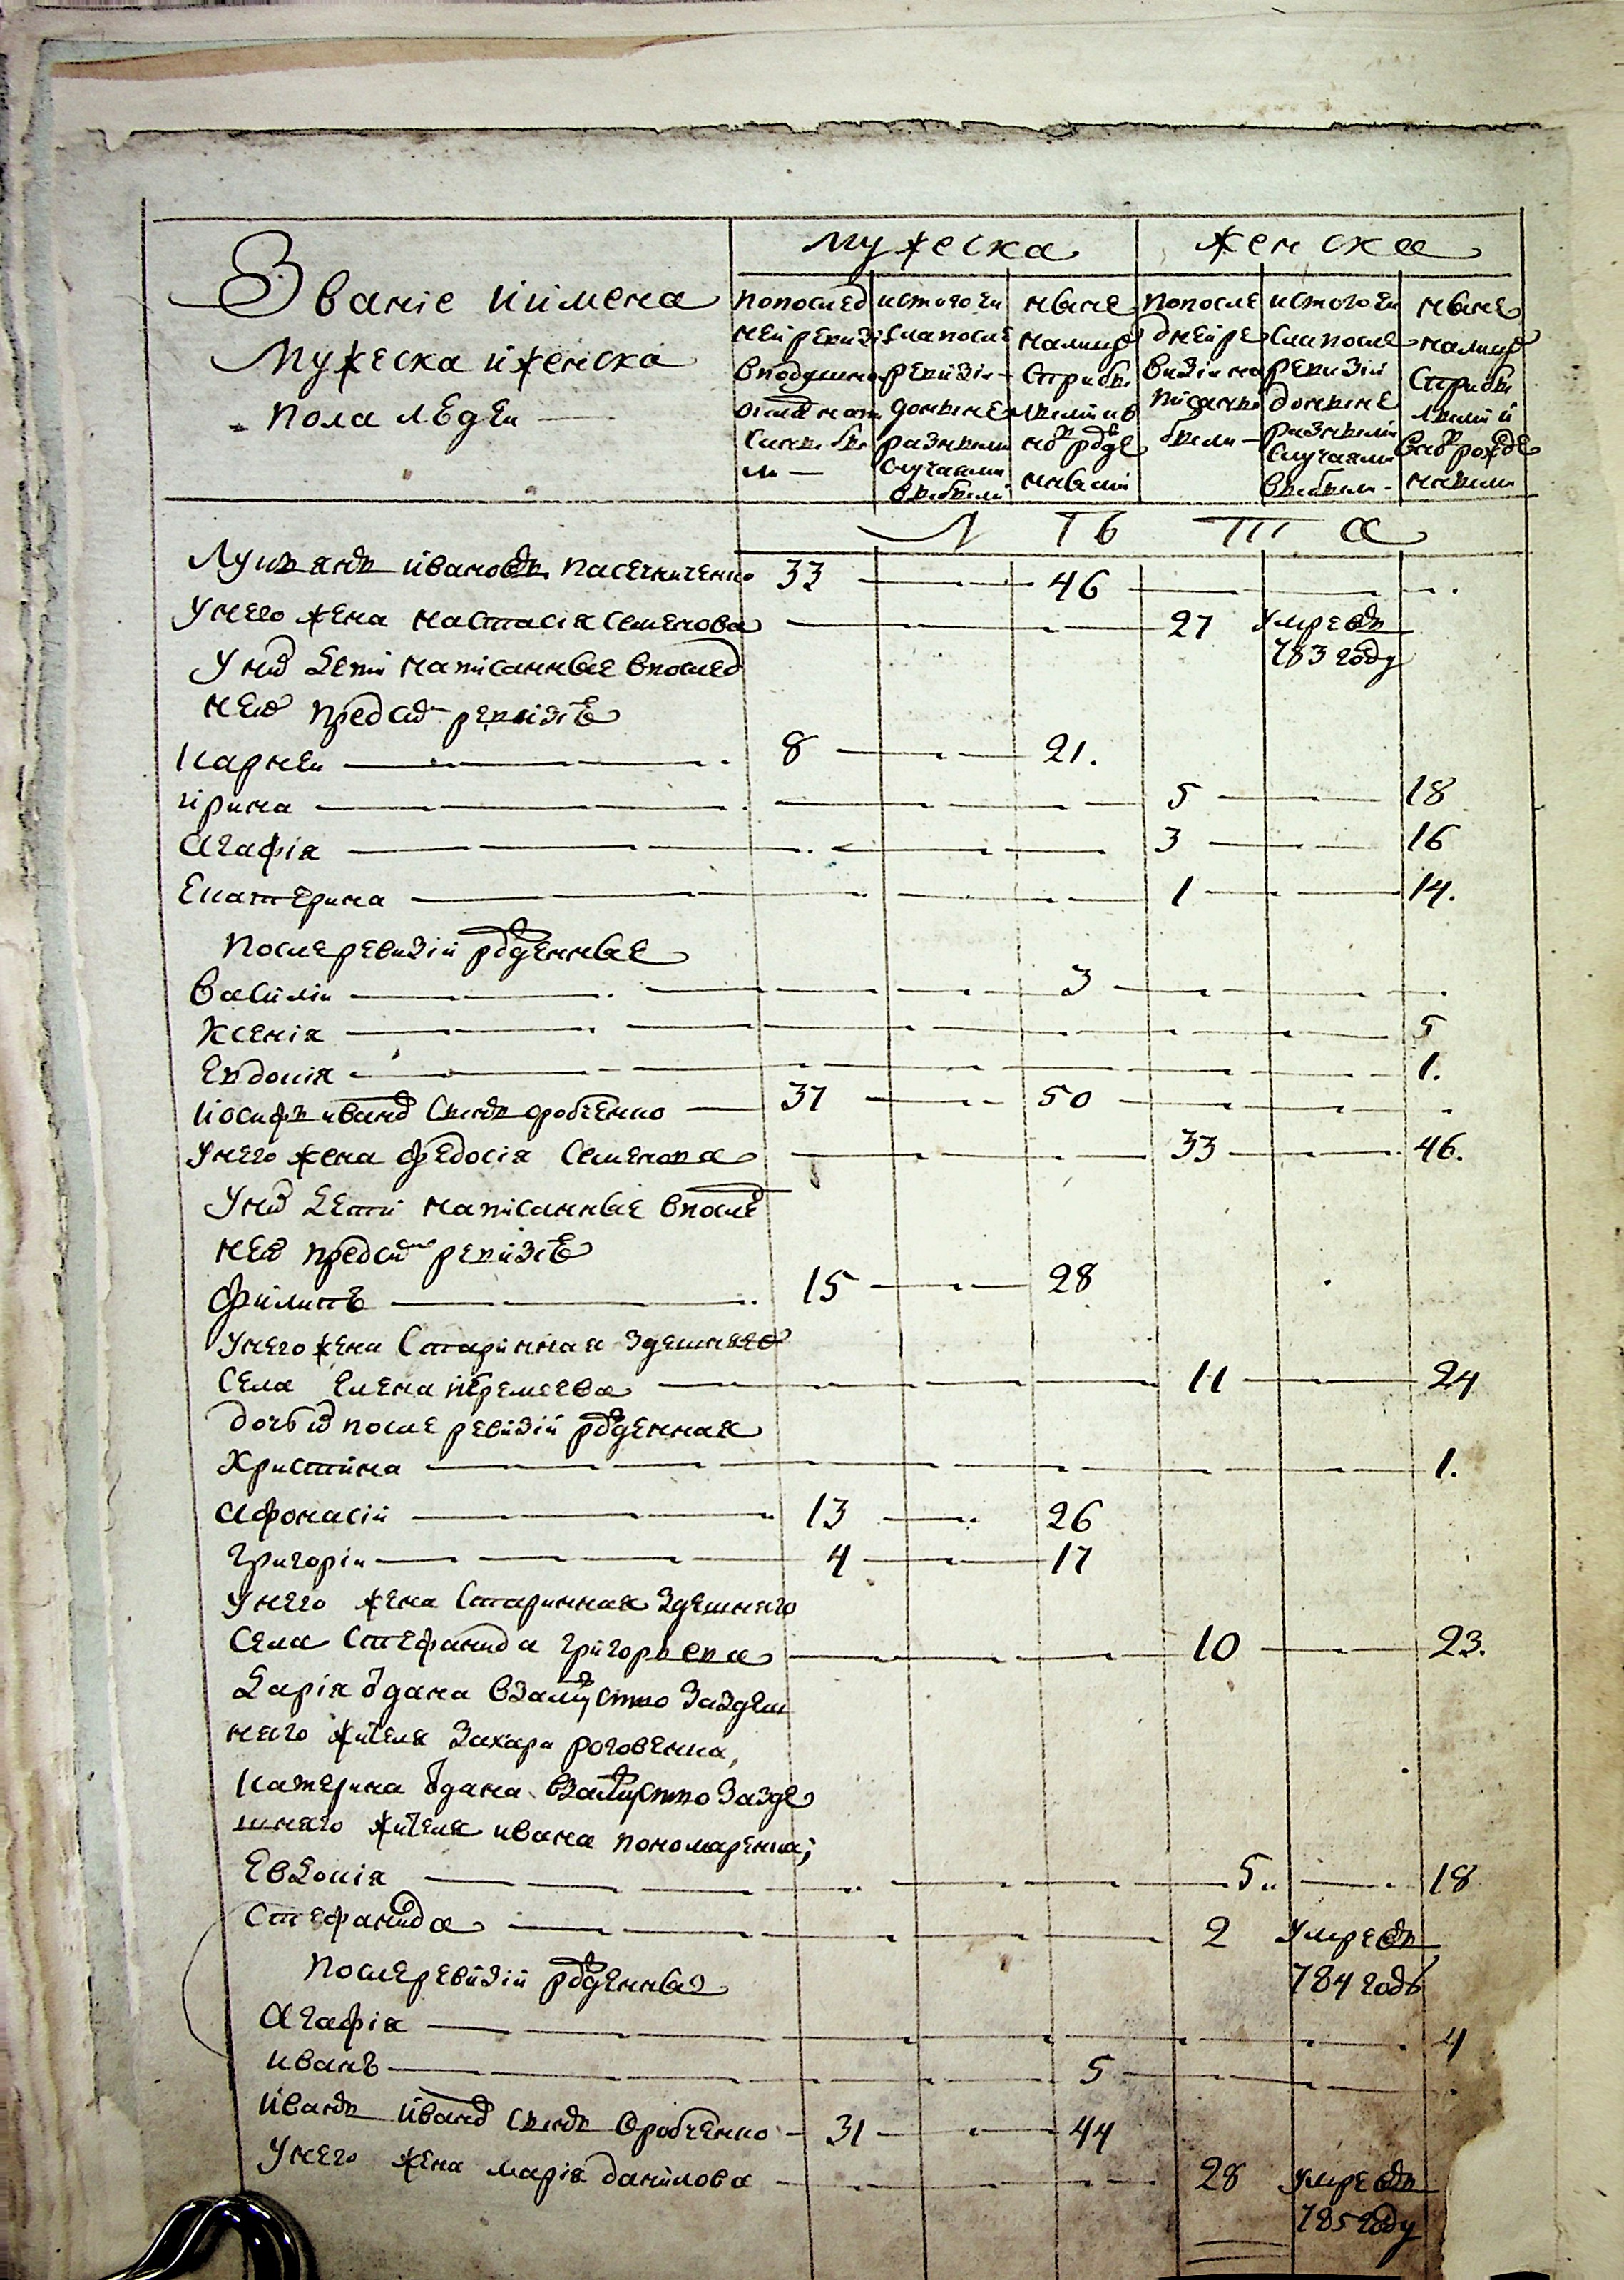 Званіе иимена
Мужеска иженска
пола людеи
мужеска
женска
попослед
неи ревизі
вподушно
окладнапи
санны бы
ли —
истого чи
сла после
ревизіи
доныне
разными
случаями
выбыли
ныне
налицо
сприбы
лыми ив
новорожде
нными
попосле
днеи ре
визіи на
писаны
были —
истого чи
сла после
ревизіи
доныне
разными
случаями
выбыли
ныне
налицо
сприбы
лыми и
вновь рожде
нными
Л Ѣ Т А
Лукъянъ ивановъ пасечниченко 33 46
Унего жена настасія семенова 27 умре въ
783 году
Уних дети написанные впослед
неи пред сим ревизіѣ
Карнеи 8 21.
ирина 5 18
агафія 3 16
Екатерина 1 14.
после ревизіи рожденные
василіи 3
Ксенія 5
Евдокія 1.
иосифъ иванов сынъ оробченко 37 50
Унего жена федосія семенова 33 46.
Уних дети написанные впосле
неи пред сим ревизіѣ
филипъ 15 28
Унего жена старинная здешнего
села елена иеремеева 11 24
дочь их после ревизіи рожденная
Христина 1.
афонасіи 13 26
григоріи 4 17
Унего жена старинная здешняго
села стефанида григорьева 10 23.
дарія отдана взамужство заздеш
няго жителя захара роговенка,
катерина отдана взамужство заздѣ
шняго жителя ивана пономаренка;
Евдокія 5 18
стефанида 2 умре въ
784 годѣ
после ревизіи рожденные
агафія 4
иванъ 5
иванъ иванов сынъ оробченко 31 44
Унего жена марія данилова 28 умре въ
785 году